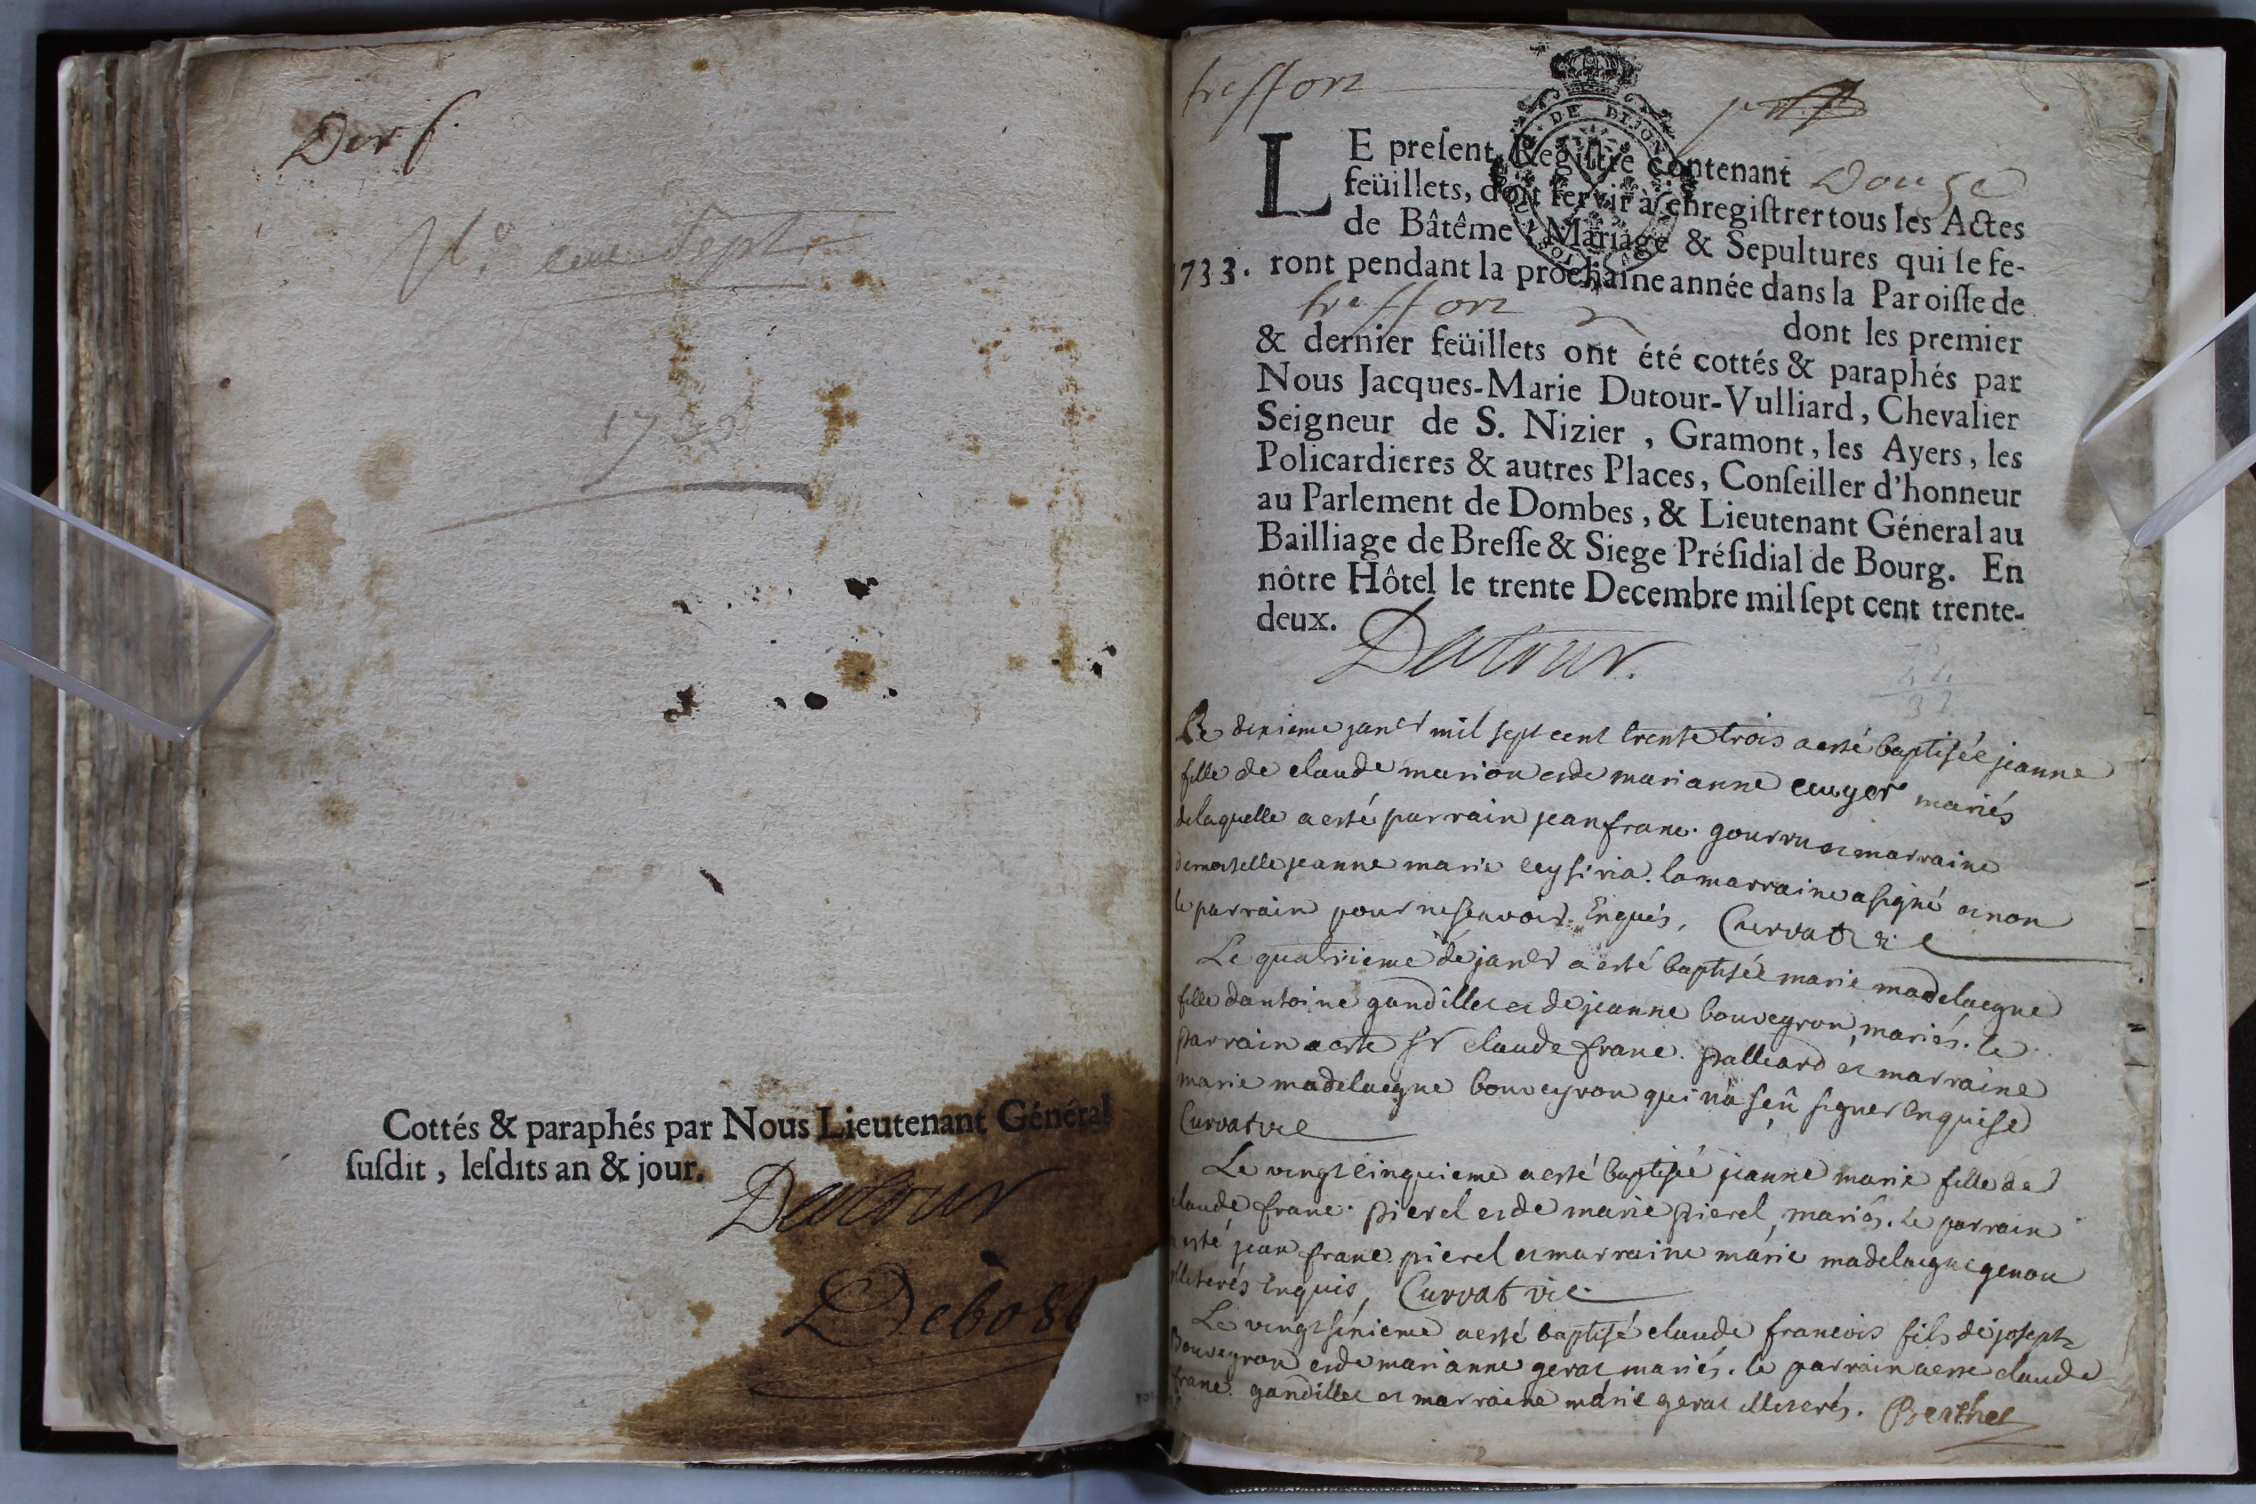 Der f.
N.° cent Sept
1733
Cottés & paraphés par Nous Lieutenant Général
ſuſdit, leſdits an & jour.
Dutour
Debost
treffort
DE DIJON
LE preſent Regiſtre contenant Douze
feüillets, doit ſervir à enregiſtrer tous les Actes
de Bâtême, Mariage & Sepultures qui ſe fe-
1733. ront pendant la prochaine année dans la Paroiſſe de
treffort dont les premier
& dernier feüillets ont été cottés & paraphés par
Nous Jacques-Marie Dutour-Vulliard, Chevalier
Seigneur de S. Nizier, Gramont, les Ayers, les
Policardieres & autres Places, Conſeiller d'honneur
au Parlement de Dombes, & Lieutenant Géneral au
Bailliage de Breſſe & Siege Préſidial de Bourg. En
nôtre Hôtel le trente Decembre mil ſept cent trente-
deux.
Dutour.
Le deuxieme janer mil sept cent trente trois a esté baptisée jeanne
fille de claude marion et de marianne mariés
de laquelle a esté parrain jean franc. gourru et marraine
demoiselle jeanne marie ceysiria. la marraine a signé et non
le parrain pour ne scavoir. Enquis, Curvat vic
Le quatrieme de janer a esté baptisée marie madelaegne
fille dantoine gandillet et de jeanne bouveyron, mariés. le
parrain a esté sr claude franc. palliard et marraine
marie madelaegne bouveyron qui na sçeu signer enquise
Curvat vic
Le vingt cinquieme a esté baptisée jeanne marie fille de
claude franc. pierel et de marie pierel, mariés. le parrain
a esté jean franc. pierel et marraine marie madelaegne genou
illiterés enquis, Curvat vic.
Le vingt sixieme a esté baptisé claude francois fils de joseph
Bouveyron et de marianne gerat mariés. le parrain a esté claude
franc. gandillet et marraine marie gerat illiterés. Berthet